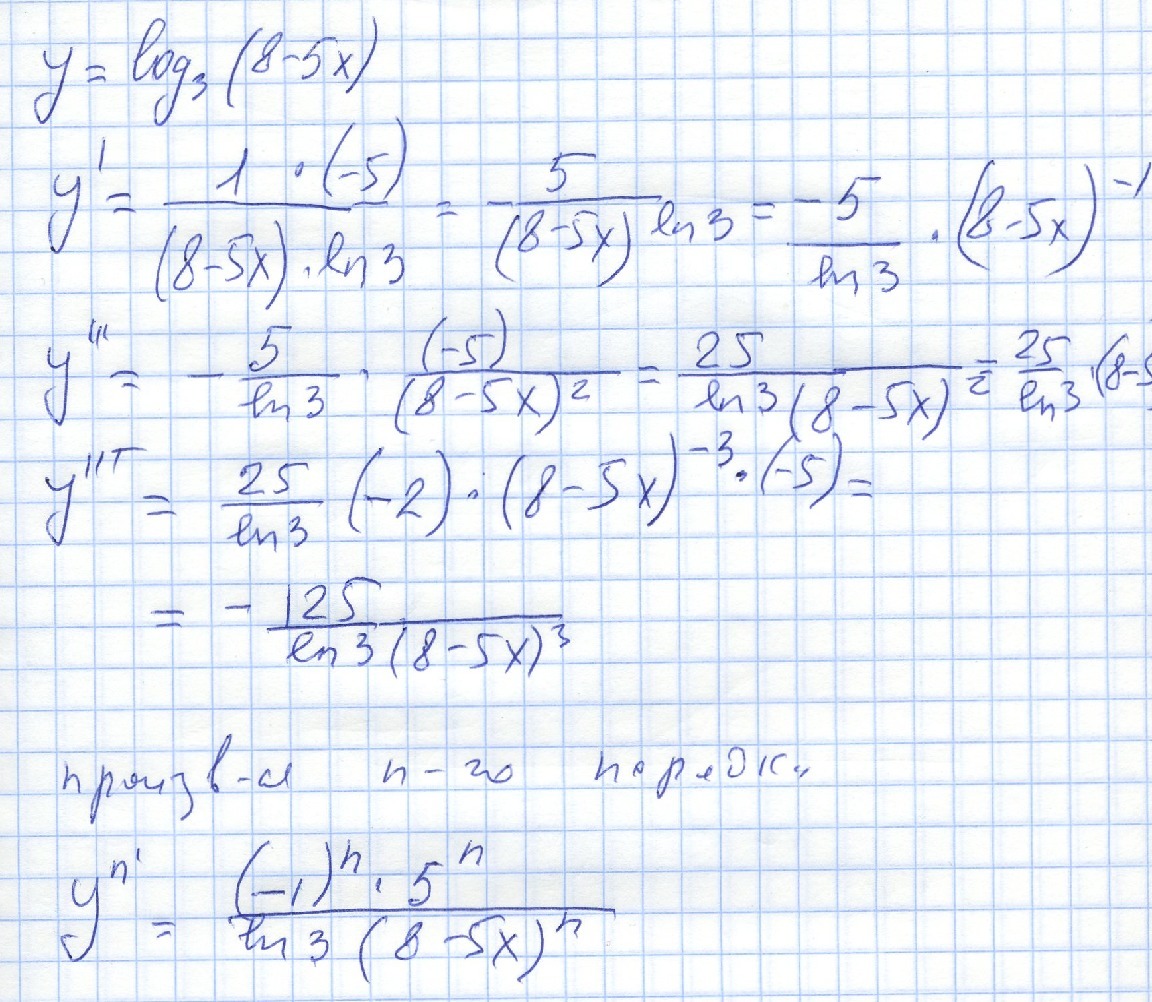 y = log₃(8-5x)
y' = 1·(-5) / ((8-5x)·ln3) = - 5 / ((8-5x) ln3) = -5/ln3 · (8-5x)⁻¹
y''' = - 5/ln3 · (-5)/(8-5x)² = 25 / (ln3(8-5x)²) = 25/ln3 ·(8-5
y''' = 25/ln3 (-2)·(8-5x)⁻³·(-5) =
= - 125 / (ln3(8-5x)³)
произв-я n-го порядка
yⁿ' = (-1)ⁿ·5ⁿ / (ln3 (8-5x)ⁿ)